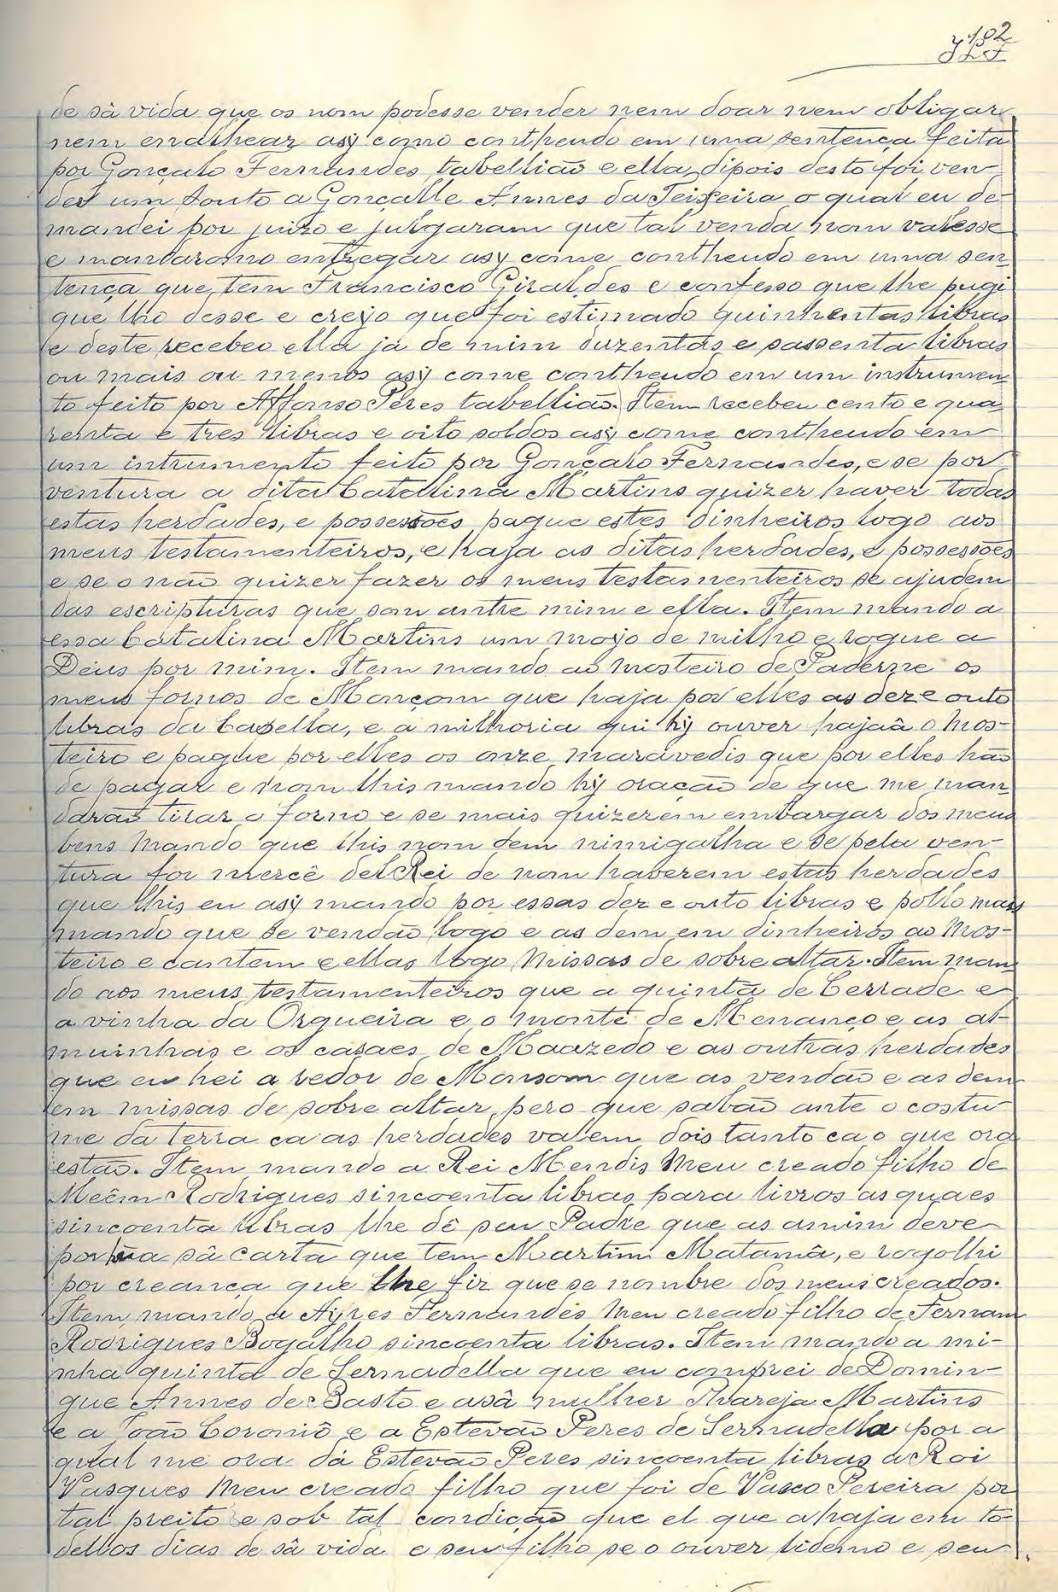 182
de sâ vida que os nom podesse vender nem doar nem obligar
nem enalhear asÿ como contheudo em uma sentença feita
por Gonçalo Fernandes tabellião e ella dipois desto foi ven-
der um souto a Gonçalle Annes da Teixeira o qual eu de-
mandei por juizo e julgaram que tal venda nom valesse
e mandaromo entregar asy come contheudo em uma sen
tença que tem Francisco Giraldes e confesso que lhe pugi
que lho desse e crejo que foi estimado quinhentas libras
e deste recebeo ella já de mim duzentas e sassenta libras
ou mais ou menos asÿ come contheudo em um instrumen
to feito por Affonso Peres tabellião. Item recebeu cento e qua
renta e tres libras e oito soldos asy come contheudo em
um intrumento feito por Gonçalo Fernandes, e se por
ventura a dita Catellina Martins quizer haver todas
estas herdades, e possessões pague estes dinheiros logo aos
meus testamenteiros, e haja as ditas herdades, e possessões
e se o não quizer fazer os meus testamenteiros se ajudem
das escripturas que som antre mim e ella. Item mando a
essa Catalina Martins um moyo de milho e rogue a
Deus por mim. Item mando ao mosteiro de Paderne os
meus fornos de Monçom que haja por elles as deze outo
libras da Capella, e a milhoria qui hÿ ouver hajaâ o Mos-
teiro e pague por elles os onze maravedis que por elles hão
de pagar e nom lhis mando hÿ oração de que me man
darão tirar o forno e se mais quizerem embargar dos meus
bens Mando que lhis nom dem nimigalha e se pela ven-
tura for mercê del Rei de nom haverem estas herdades
que lhis eu asÿ mando por essas dez e outo libras e pollo mais
mando que se vendão logo e as dem em dinheiros ao Mos-
teiro e cantem e ellas logo Missas de sobre altar. Item man
do aos meus testamenteiros que a quintã de Cerrade e
a vinha da Orgueira e o monte de Menanço e as al-
muinhas e os casaes de Maazedo e as outras herdades
que eu hei a redor de Monsom que as vendão e as dem
em missas de sobre altar, pero que sabão ante o costu-
me da terra ca as herdades valem dois tanto ca o que ora
estão. Item mando a Rei Mendis Meu creado filho de
Meêm Rodrigues sincoenta libras para livros as quaes
sincoenta libras lhe dê seu Padre que as amim deve
por hũa sâ carta que tem Martim Matamâ, e rogolhi
por creança que lhe fiz que se nombre dos meus creados.
Item mando a Ayres Fernandes Meu creado filho de Fernam
Rodrigues Bogalho sincoenta libras. Item mando a mi-
nha quinta de Sernadella que eu comprei de Domin-
gue Annes de Basto e asâ mulher Thareja Martins
e a João Coroniô e a Estevão Peres de Sernadella por a
qual me ora dá Estevão Peres sincoenta libras a Roi
Vasques Meu creado filho que foi de Vasco Pereira por
tal preito e sob tal condição que el que a haja em to-
dellos dias de sâ vida e seu filho se o ouver lidemo e seu